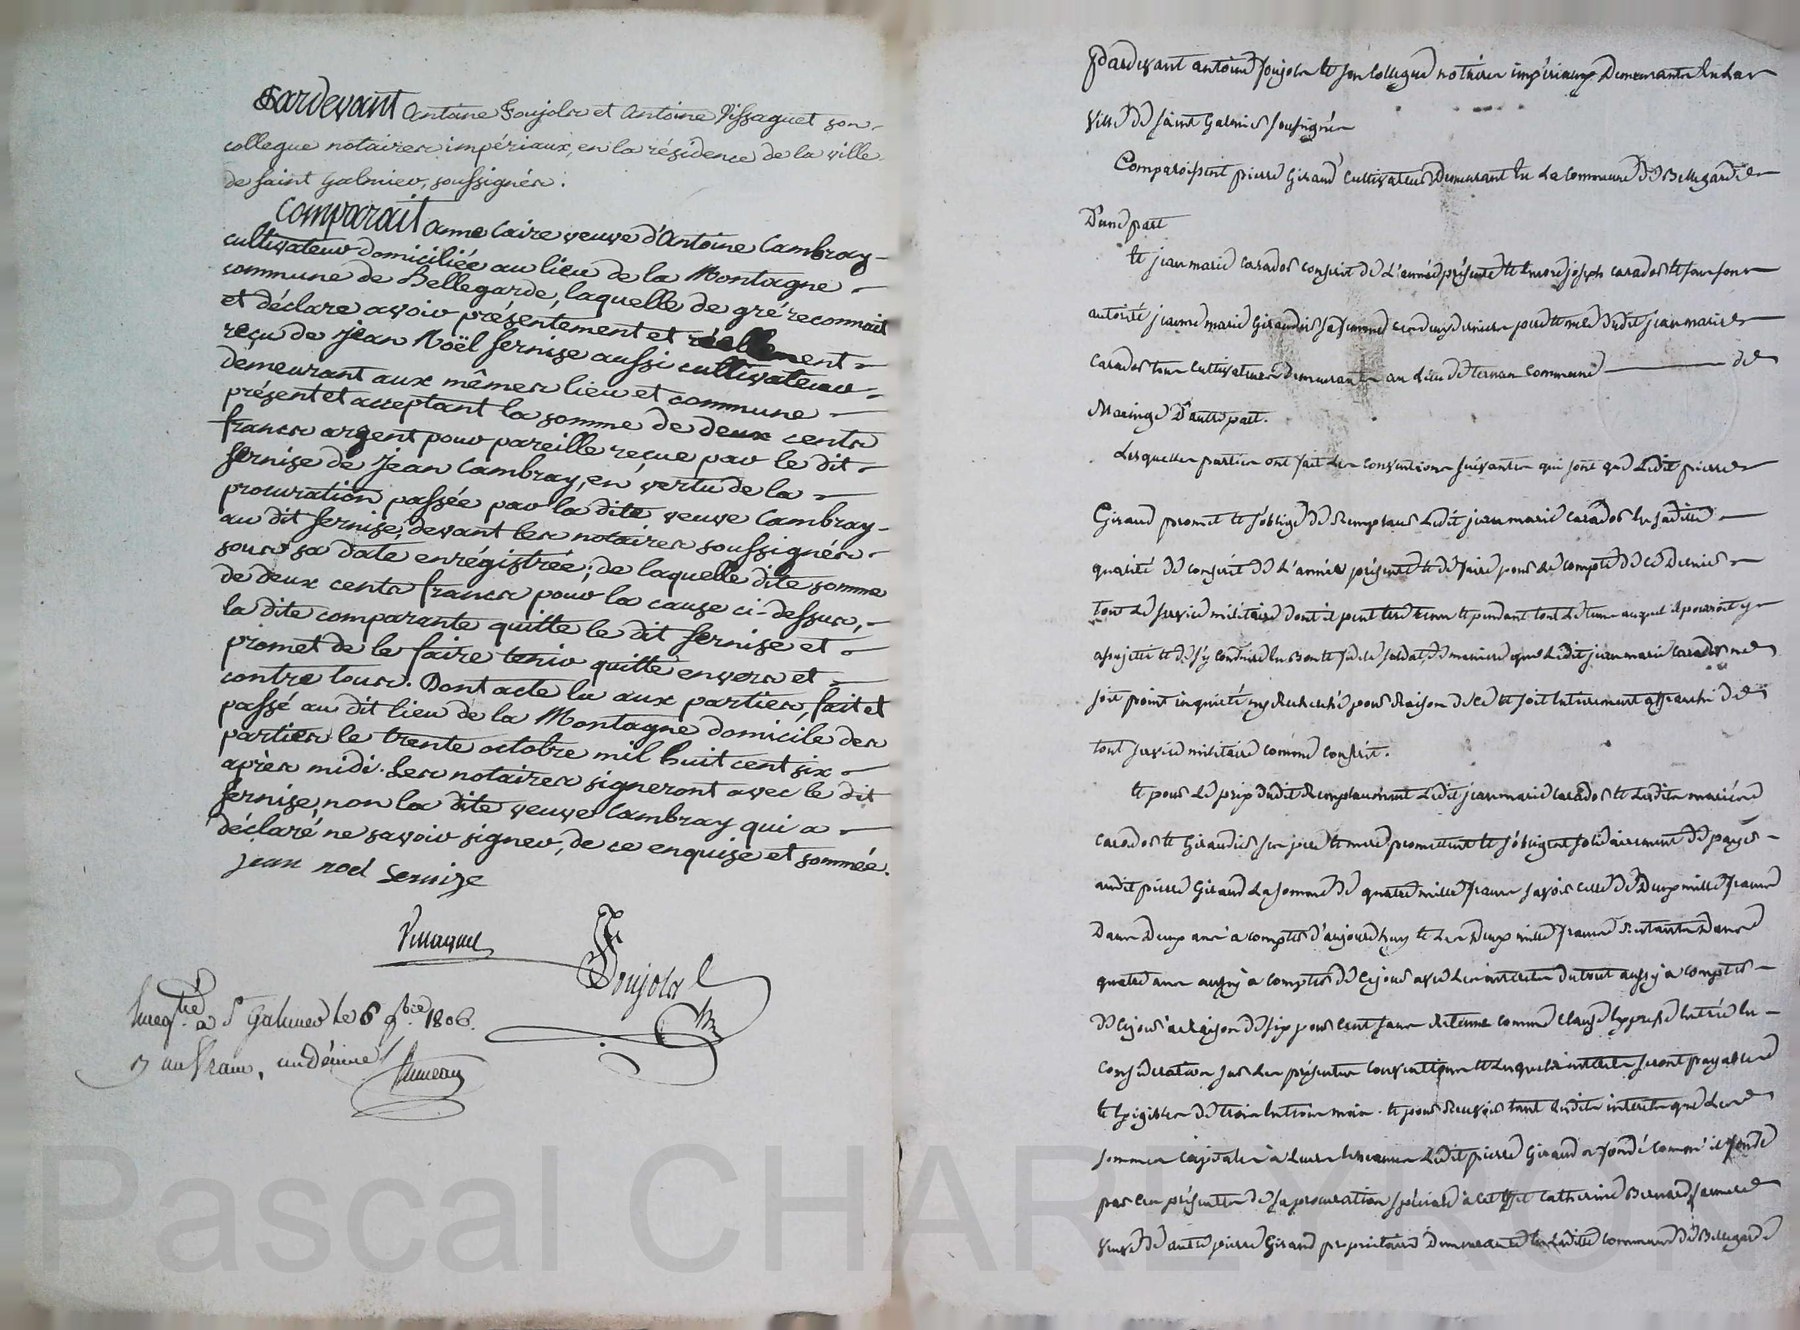 Pardevant Antoine Poujols et Antoine Vissaguet son
collegue notaires impériaux, en la résidence de la ville
de saint Galmier, soussignés.
Comparait anne Caire veuve d'Antoine Cambray
cultivateur domiciliée au lieu de la Montagne
commune de Bellegarde, laquelle de gré reconnait
et déclare avoir présentement et réellement
reçu de Jean Noël Sernize aussi cultivateur
demeurant aux mêmes lieu et commune
présent et acceptant la somme de deux cents
francs argent pour pareille reçue par le dit
Sernize de Jean Cambray, en vertu de la
procuration passée par la dite veuve Cambray
au dit Sernize, devant les notaires soussignés
sous sa date enrégistrée; de laquelle dite somme
de deux cents francs pour la cause ci-dessus,
la dite comparante quitte le dit Sernize et
promet de le faire tenir quitte envers et
contre tous. Dont acte lu aux parties, fait et
passé au dit lieu de la Montagne domicile des
parties le trente octobre mil huit cent six
après midi. Les notaires signeront avec le dit
Sernize, non la dite veuve Cambray qui a
déclaré ne savoir signer, de ce enquise et sommée.
jean noel Sernize
Vissaguet
Poujols
Enregtré à St Galmier le 6 9bre 1806.
un franc, un décime
Pardevant antoine Poujols et son collegue notaires impériaux demeurants en la
ville de saint Galmier soussignés
Comparoissent pierre Giraud cultivateur demeurant en la commune de Bellegarde
D'une part
et jean marie carados conscrit de l'année présente et encore joseph carados et sous son
autorité jeanne marie Giraudier sa femme ces deux derniers pere et mere dudit jean marie
carados tous cultivateurs demeurants au lieu de commune de
Maringe D'autre part.
Lesquelles parties ont fait les conventions suivantes qui sont que Ledit pierre
Giraud promet et s'oblige de remplacer Ledit jean marie carados en sadite
qualité de conscrit de l'année présente et de faire pour le compte de ce Dernier
tout le service militaire dont il peut être tenu et pendant tout le tems auquel il pourroit y
assujetti et de s'y conduire en bon et fidele soldat, de maniere que Ledit jean marie carados ne
soit point inquiété ny Recherché pour Raison de ce et soit entierement affranchi de
tout service militaire comme conscrit.
et pour le prix dudit Remplacement Ledit jean marie carados et lesdits mariés
carados et Giraudier ses pere et mere promettent et s'obligent solidairement de payer
audit pierre Giraud La somme de quatre mille francs savoir celle de Deux mille francs
Dans Deux ans à compter d'aujourd'huy et Les Deux mille francs Restants Dans
quatre ans aussy à compter de ce jour avec les interets du tout aussy à compter
de ce jour à Raison de six pour cent sans Retenue comme clause expresse entrée en
consideration par les présentes conventions et Lesquels interets seront payables
et exigibles de trois en trois mois. et pour Recevoir tant lesdits interets que Les
sommes capitales à leurs echeances Ledit pierre Giraud a fondé comme il fonde
par ces présentes de sa procuration spéciale à cet effet Catherine Bernard sa mere
veuve de autre pierre Giraud propriétaire demeurante en Ladite commune de Bellegarde
Pascal CHAREYRON